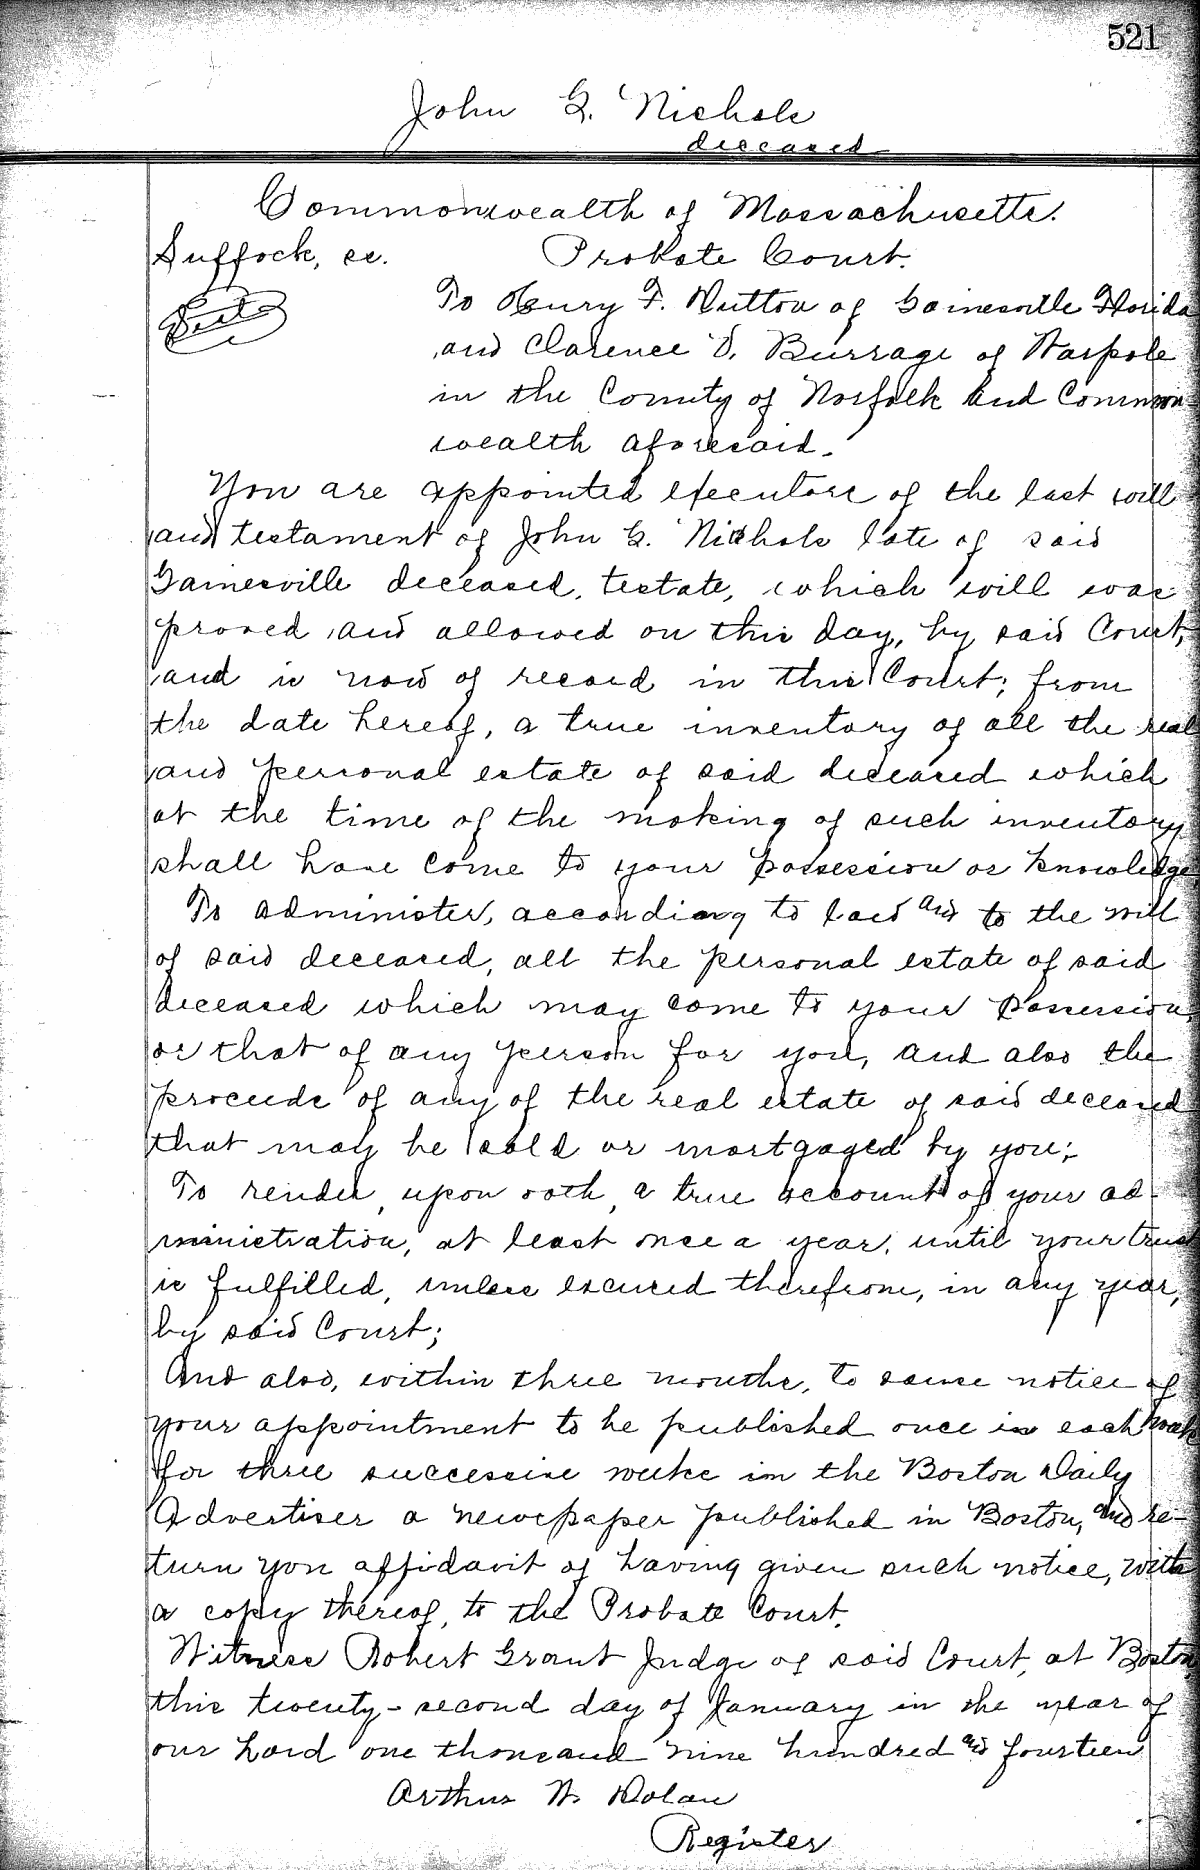 521
John G. Nichols
deceased
Commonwealth of Massachusetts.
Suffock, ss. Probate Court.
To Henry F. Dutton of Gainesville Florida
and Clarence V. Burrage of Warpole
in the County of Norfolk and Common
wealth aforesaid.
You are appointed executors of the last will
and testament of John G. Nichols late of said
Gainesville deceased, testate, which will was
proved and allowed on this day, by said Court,
and is now of record in this Court; from
the date hereof, a true inventory of all the real
and personal estate of said deceased which
at the time of the making of such inventory
shall have come to your possession or knowledge
To administer, according to law and to the will
of said deceased, all the personal estate of said
deceased which may come to your possession,
or that of any person for you, and also the
proceeds of any of the real estate of said deceased
that may be sold or mortgaged by you;
To render, upon oath, a true account of your ad-
ministration, at least once a year, until your trust
is fulfilled, unless excused therefrom, in any year,
by said Court;
And also, within three months, to cause notice of
your appointment to be published once in each week
for three successive weeks in the Boston Daily
Advertiser a newspaper published in Boston, and re-
turn you affidavit of having given such notice, with
a copy thereof, to the Probate Court.
Witness Robert Grant Judge of said Court, at Boston,
this twenty-second day of January in the year of
our Lord one thousand nine hundred and fourteen
Arthur W. Dolan
Register